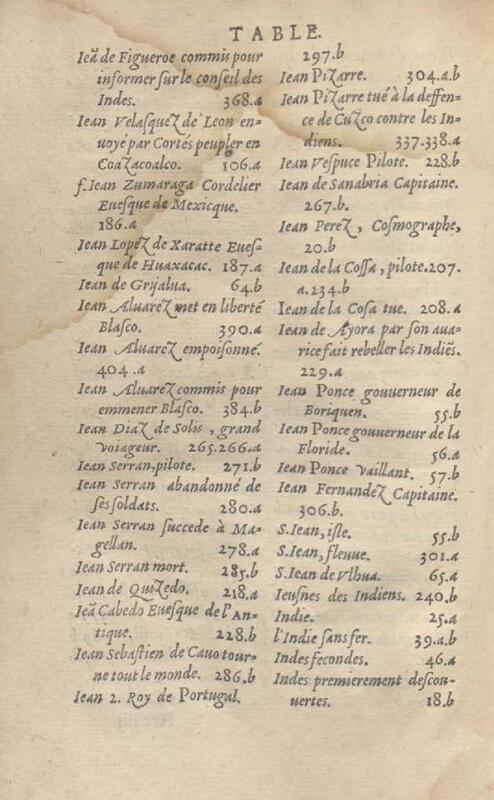 TABLE.
Ieā de Figueroe commis pour
informer sur le conseil des
Indes. 368.a
Iean Velasquez de Leon en-
uoyé par Cortés peupler en
Coazacoalco. 106.a
f.Iean Zumaraga Cordelier
Euesque de Mexicque.
186.a
Iean Lopez de Xaratte Eues-
que de Huaxacac. 187.a
Iean de Grijalua. 64.b
Iean Aluarez met en liberté
Blasco. 390.a
Iean Aluarez empoisonné.
404.a
Iean Aluarez commis pour
emmener Blasco. 384.b
Iean Diaz de Solis, grand
voiageur. 265.266.a
Iean Serran, pilote. 271.b
Iean Serran abandonné de
ses soldats. 280.a
Iean Serran succede à Ma-
gellan. 278.a
Iean Serran mort. 285.b
Iean de Quizedo. 218.a
Ieā Cabedo Euesque de l'An-
tique. 228.b
Iean Sebastien de Cauo tour-
ne tout le monde. 286.b
Iean 2. Roy de Portugal.
297.b
Iean Pizarre. 304.a.b
Iean Pizarre tué à la deffen-
ce de Cuzco contre les In-
diens. 337.338.a
Iean Vespuce Pilote. 228.b
Iean de Sanabria Capitaine.
267.b.
Iean Perez, Cosmographe,
20.b
Iean de la Cossa, pilote.207.
a.234.b
Iean de la Cosa tue. 208.a
Iean de Ayora par son aua-
rice fait rebeller les Indiēs.
229.a
Iean Ponce gouuerneur de
Boriquen. 55.b
Iean Ponce gouuerneur de la
Floride. 56.a
Iean Ponce vaillant. 57.b
Iean Fernandez Capitaine.
306.b.
S.Iean, isle. 55.b
S.Iean, fleuue. 301.a
S.Iean de Vlhua. 65.a
Ieusnes des Indiens. 240.b
Indie. 25.a
l'Indie sans fer. 39.a.b
Indes fecondes. 46.a
Indes premierement descou-
uertes. 18.b